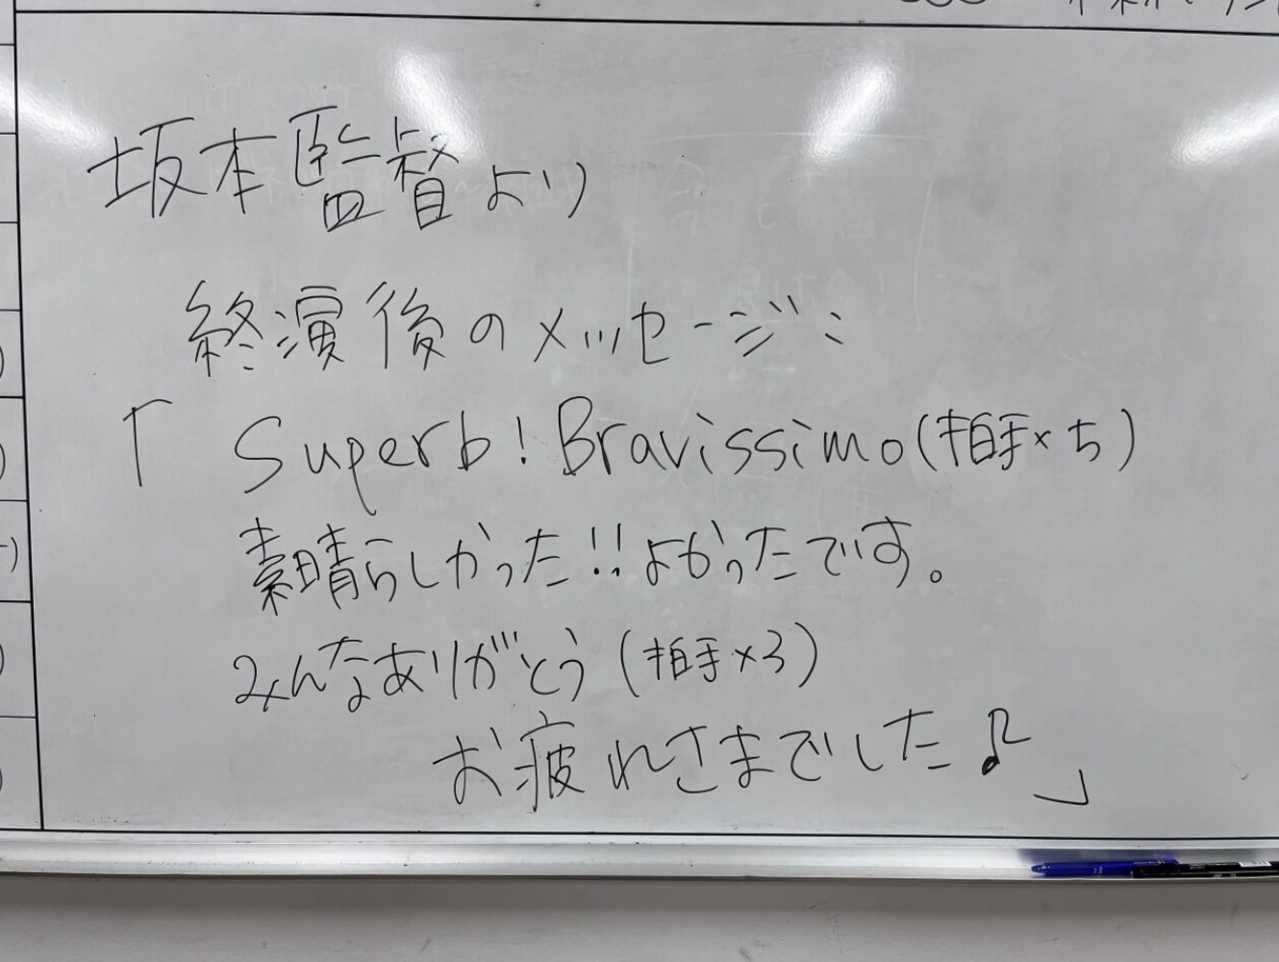 坂本監督より
終演後のメッセージ：
「 Superb! Bravissimo(拍手×5)
素晴らしかった!!よかったです。
みんなありがとう(拍手×3)
お疲れさまでした♪」